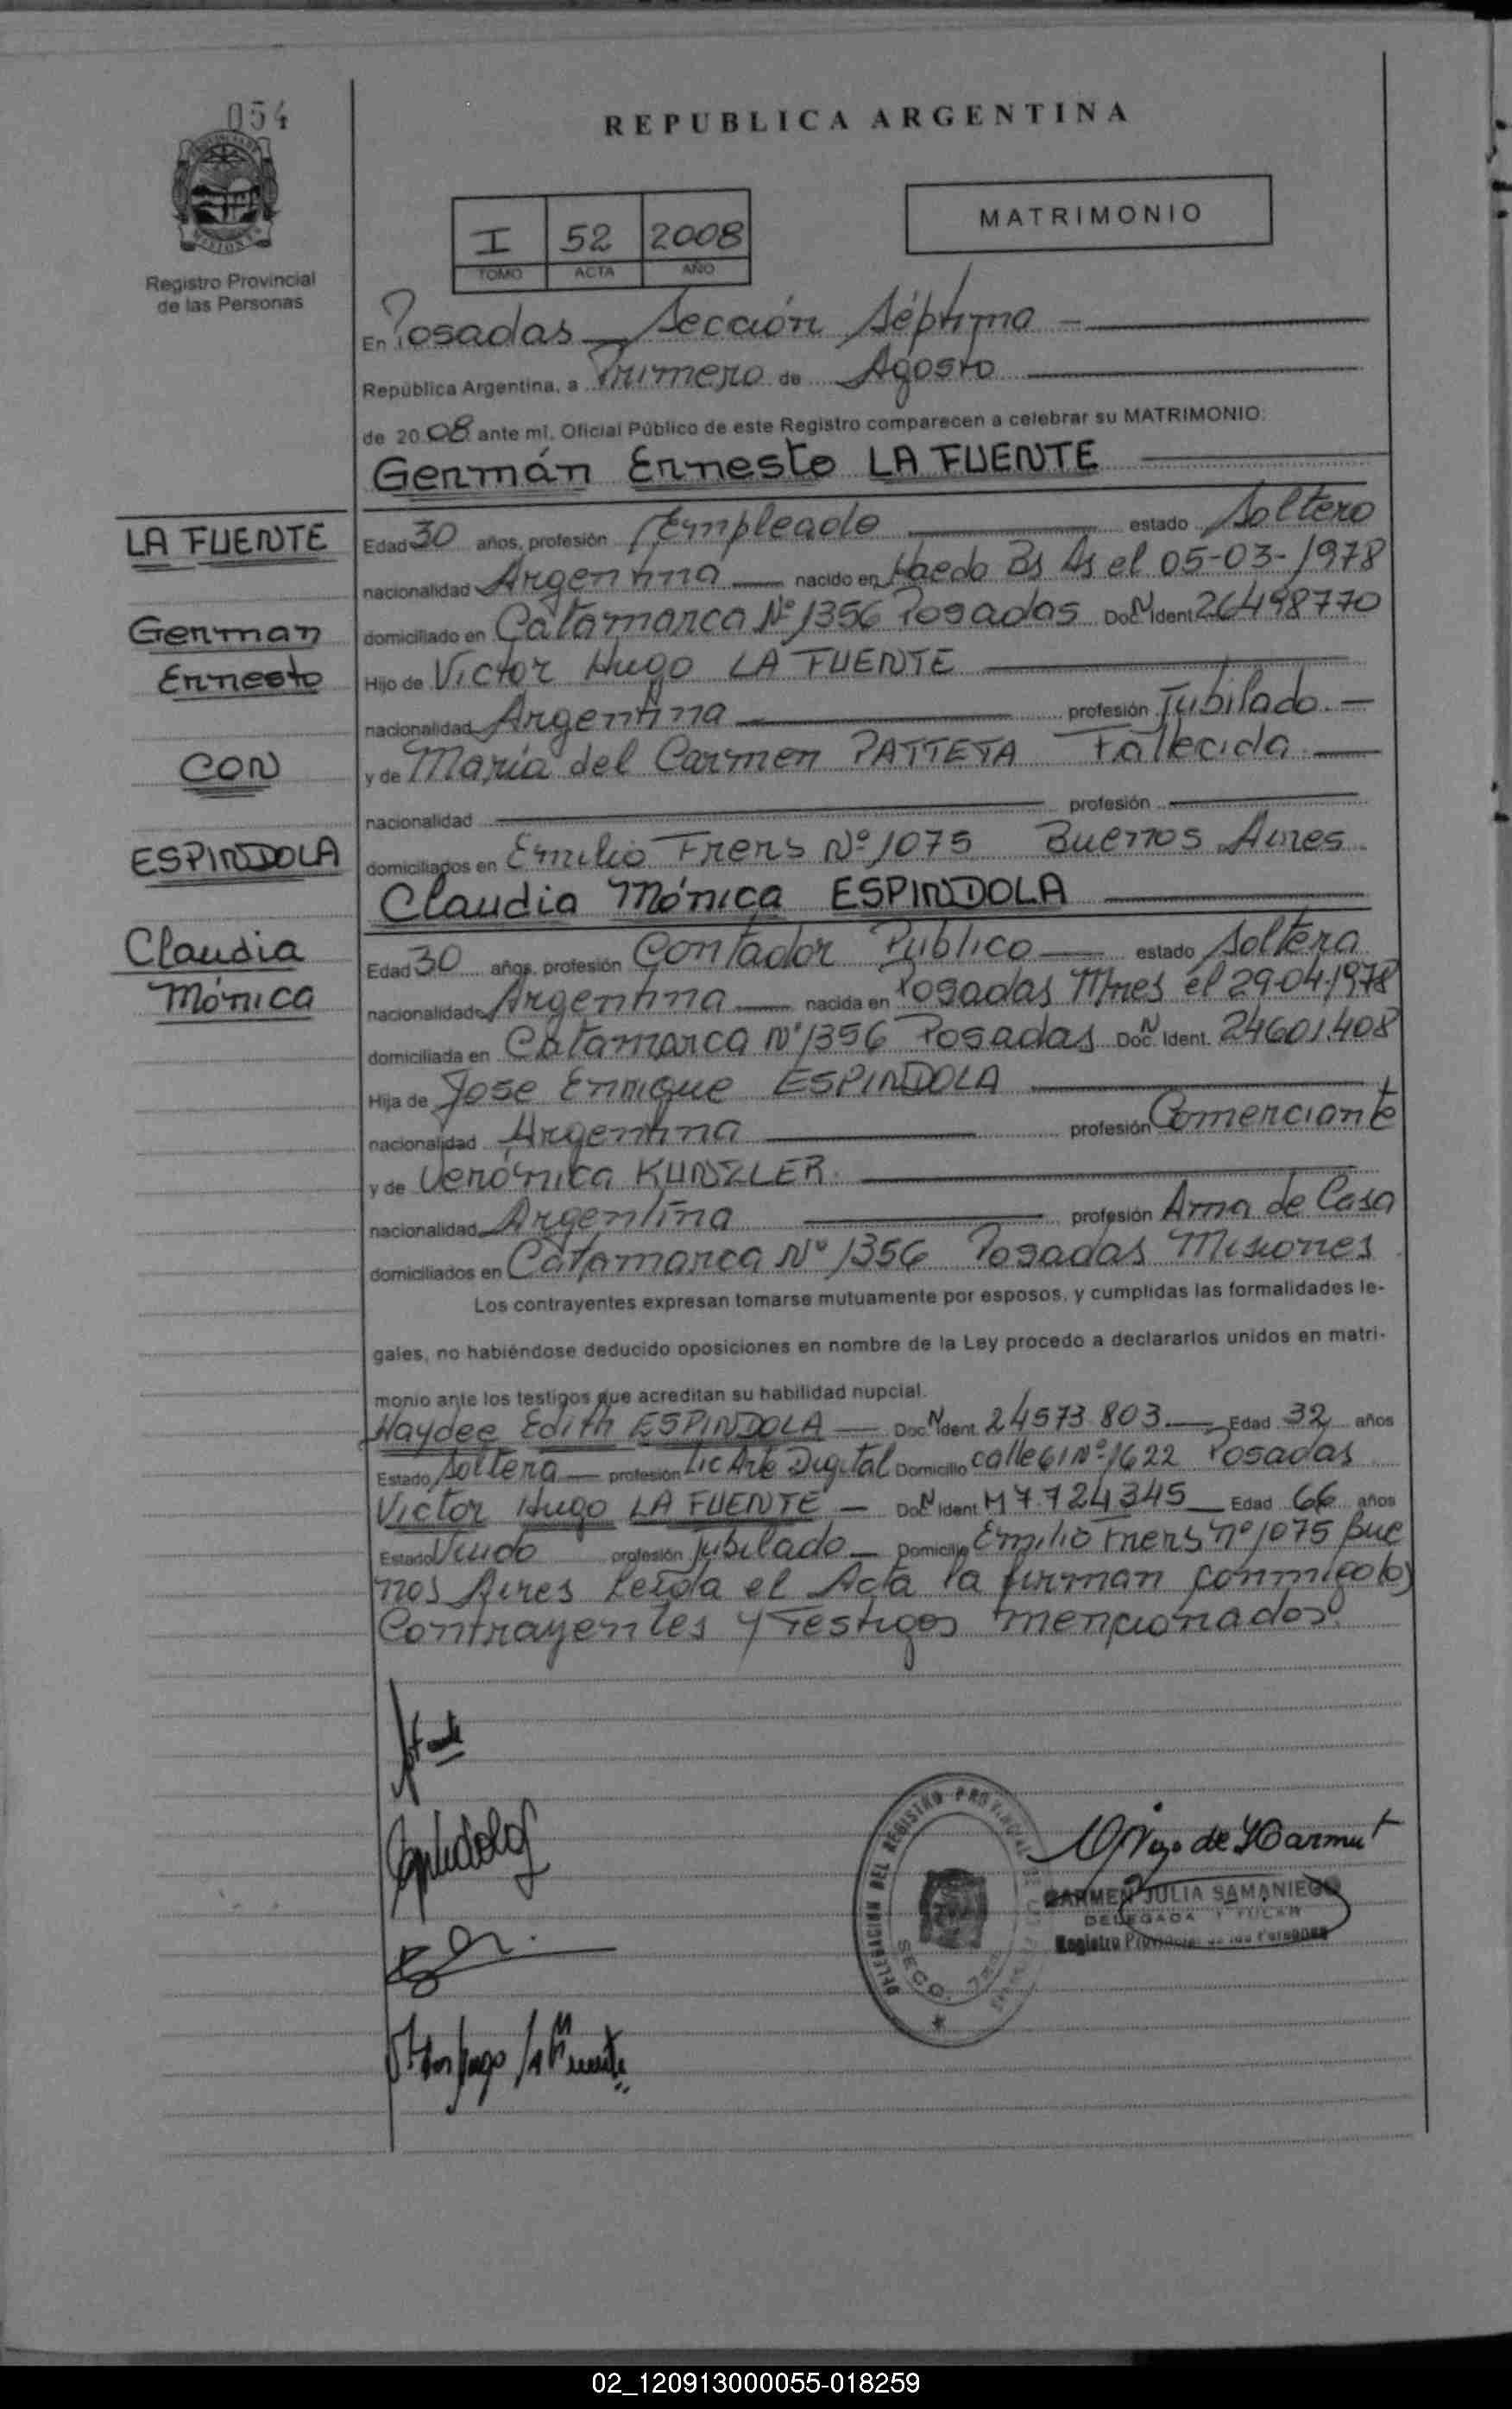 054
REPUBLICA ARGENTINA
MATRIMONIO
I 52 2008
TOMO ACTA AÑO
Registro Provincial
de las Personas
En Posadas Sección Séptima
República Argentina, a Primero de Agosto
de 2008 ante mí, Oficial Público de este Registro comparecen a celebrar su MATRIMONIO:
Germán Ernesto LA FUENTE
LA FUENTE
Edad 30 años, profesión Empleado estado Soltero
nacionalidad Argentina nacido en Haedo Bs As el 05-03-1978
German
domiciliado en Catamarca Nº 1356 Posadas Doc. N Ident 26498770
Ernesto
Hijo de Victor Hugo LA FUENTE
nacionalidad Argentina profesión Jubilado
CON
y de María del Carmen PATTETA Fallecida
nacionalidad profesión
ESPINDOLA
domiciliados en Emilio Frers Nº 1075 Buenos Aires
Claudia Mónica ESPINDOLA
Claudia
Edad 30 años, profesión Contador Publico estado Soltera
Mónica
nacionalidad Argentina nacida en Posadas Mnes el 29-04-1978
domiciliada en Catamarca Nº 1356 Posadas Doc. N Ident. 24601.408
Hija de Jose Enrique ESPINDOLA
nacionalidad Argentina profesión Comerciante
y de Verónica KUNZLER
nacionalidad Argentina profesión Ama de Casa
domiciliados en Catamarca Nº 1356 Posadas Misiones
Los contrayentes expresan tomarse mutuamente por esposos, y cumplidas las formalidades le-
gales, no habiéndose deducido oposiciones en nombre de la Ley procedo a declararlos unidos en matri-
monio ante los testigos que acreditan su habilidad nupcial.
Haydee Edith ESPINDOLA Doc. N Ident. 24573.803 Edad 32 años
Estado Soltera profesión Lic Arte Digital Domicilio calle 61 Nº 1622 Posadas
Victor Hugo LA FUENTE Doc. N Ident M 7.724345 Edad 66 años
Estado Viudo profesión Jubilado Domicilio Emilio Frers nº 1075 Bue
nos Aires Leída el Acta la firman conmigo los
Contrayentes y Testigos mencionados.
DELEGACION DEL REGISTRO PROVINCIAL DE
SECC. 7
CARMEN JULIA SAMANIEGO
DELEGADA TITULAR
Registro Provincial de las Personas
02_120913000055-018259